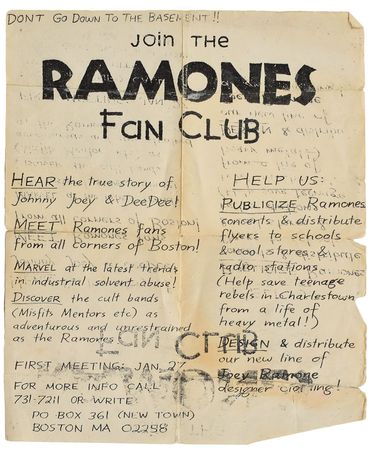 DONT GO DOWN TO THE BASEMENT!!
JOIN THE
RAMONES
FAN CLUB
HEAR the true story of
Johnny Joey & DeeDee!
MEET Ramones fans
from all corners of Boston!
MARVEL at the latest trends
in industrial solvent abuse!
DISCOVER the cult bands
(Misfits Mentors etc) as
adventurous and unrestrained
as the Ramones
FIRST MEETING: JAN. 27
FOR MORE INFO CALL
731-7211 OR WRITE
PO BOX 361 (NEW TOWN)
BOSTON MA 02258
HELP US:
PUBLICIZE Ramones
concerts & distribute
flyers to schools
& cool stores &
radio stations
(Help save teenage
rebels in Charlestown
from a life of
heavy metal!)
DESIGN & distribute
our new line of
Joey Ramone
designer clothing!